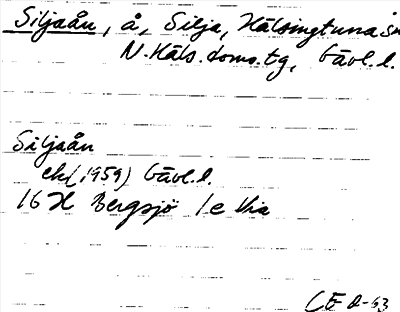 Siljaån, å, Silja, Hälsingtuna sn
N.Häls.doms.tg, Gävl.l.
Siljaån
ek (1959) Gävl.l.
16 H Bergsjö 1 e